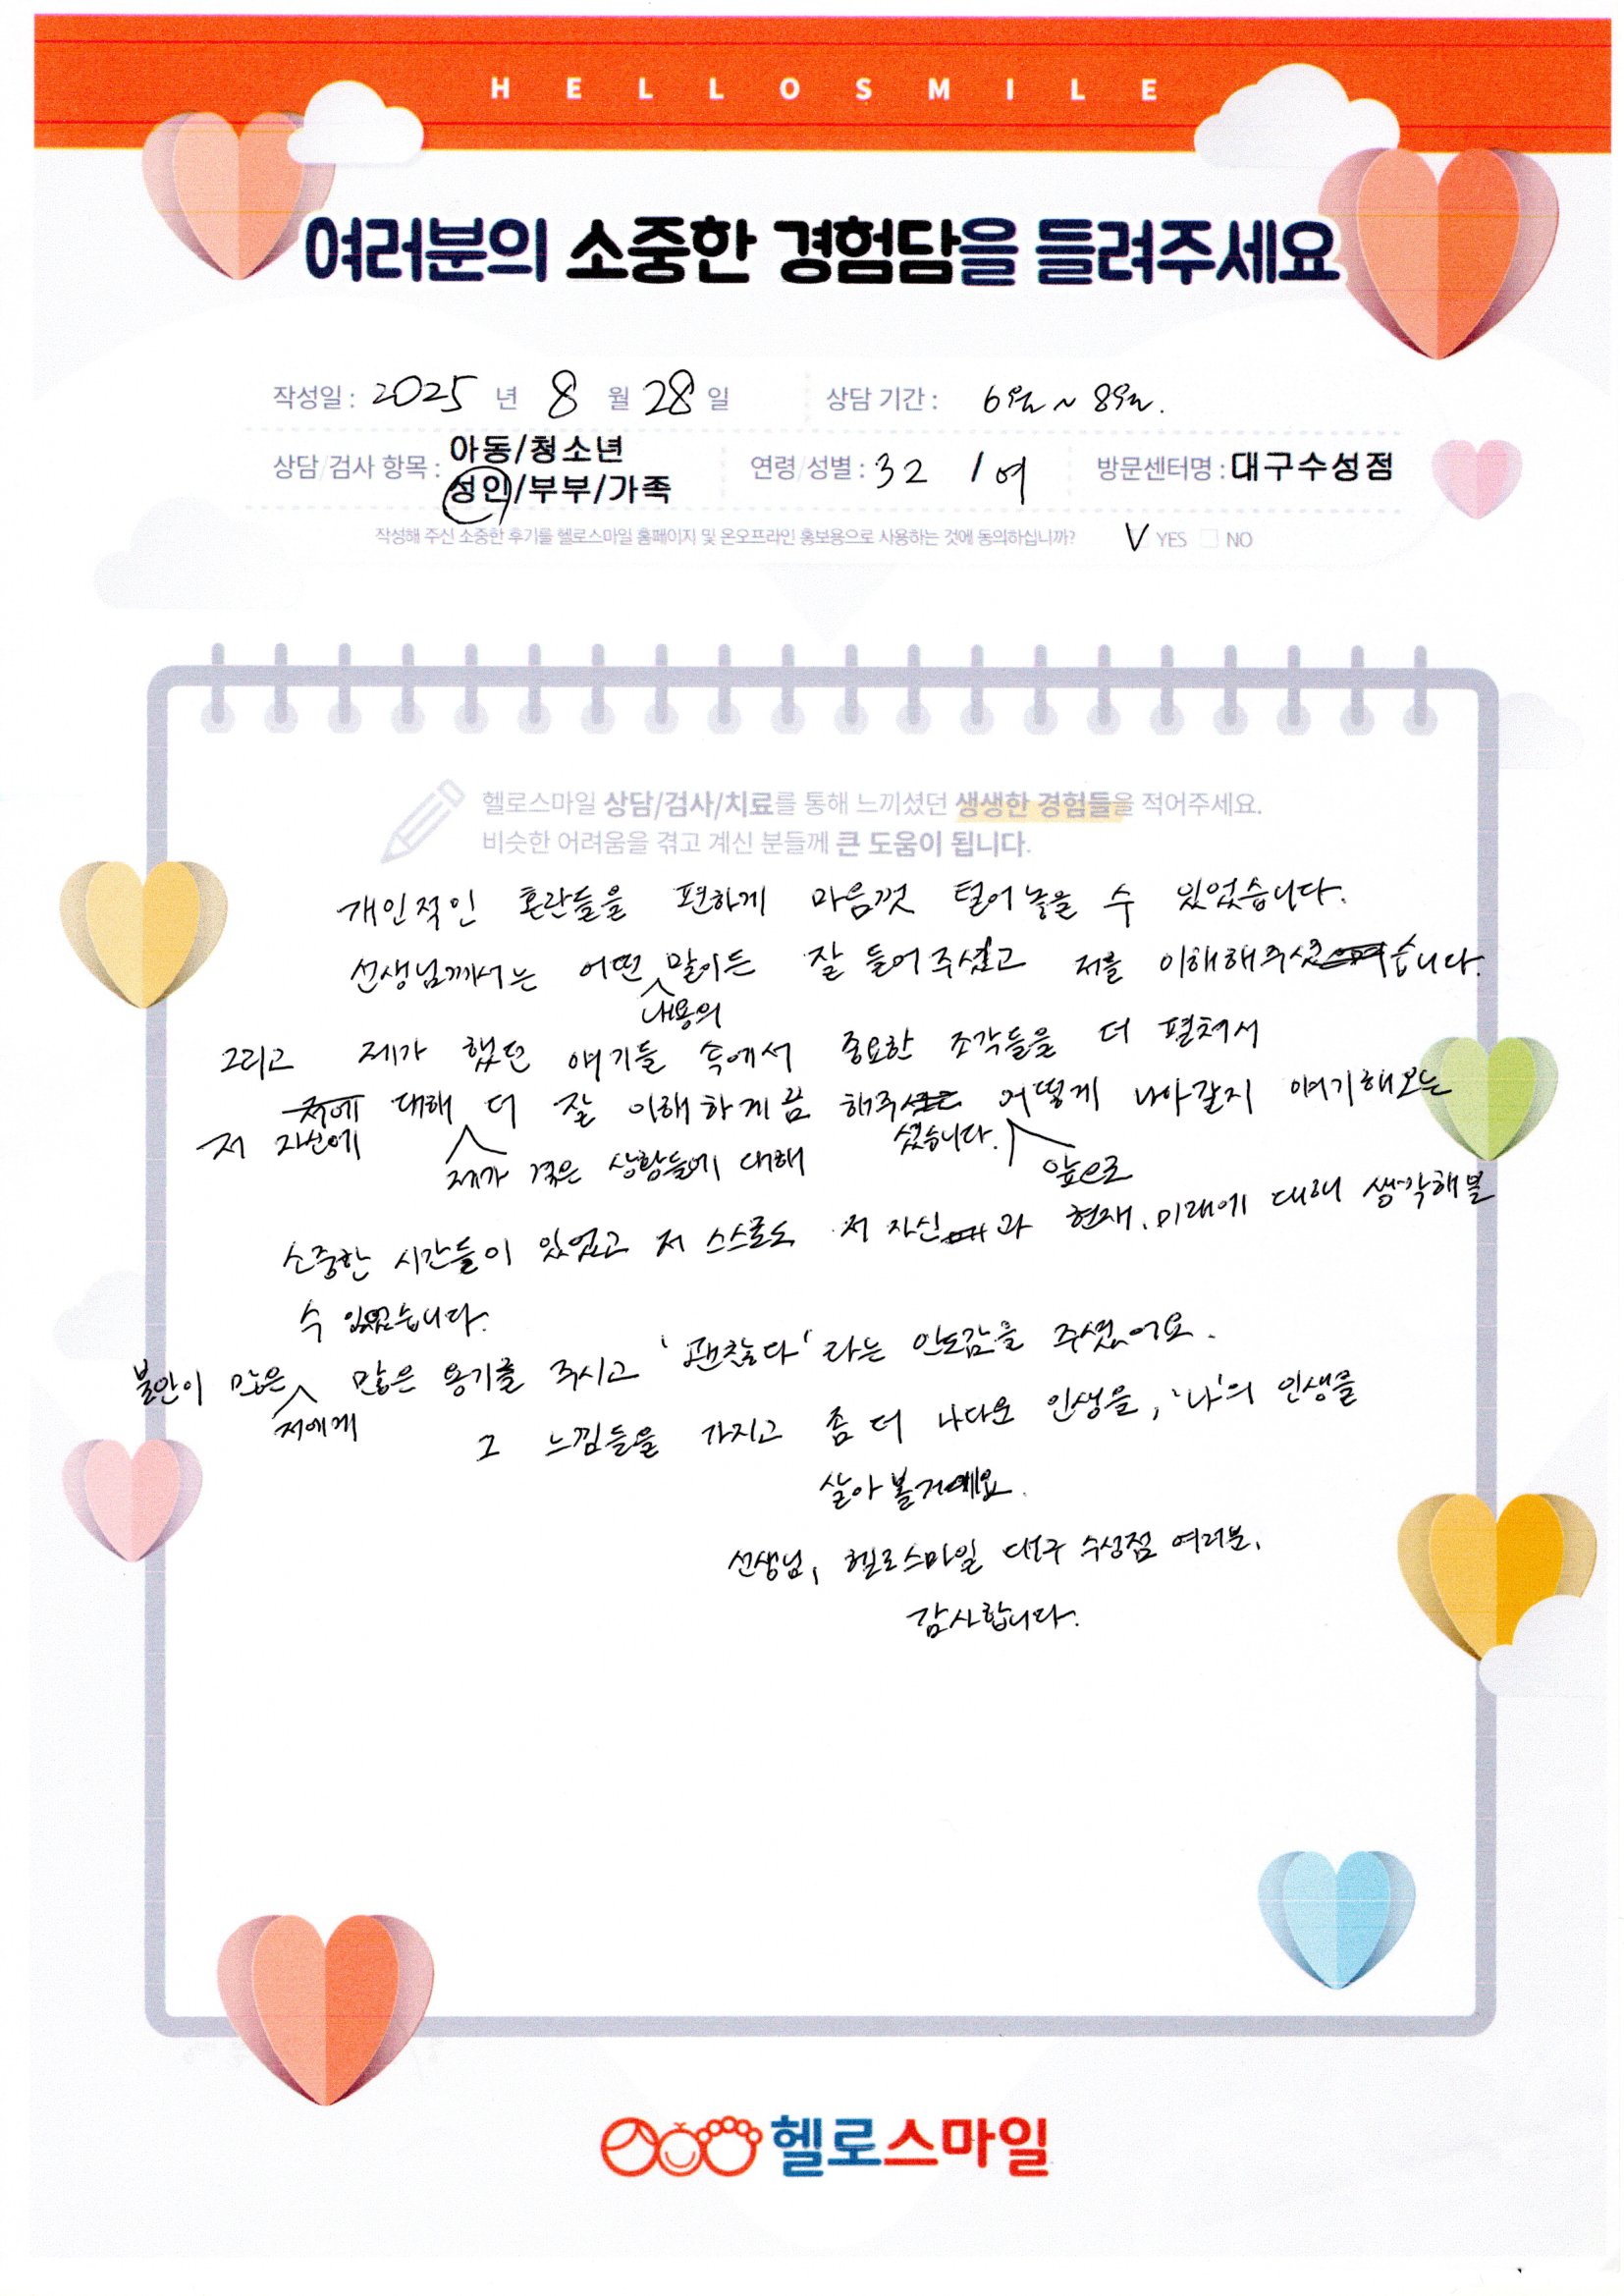 HELLOSMILE
여러분의 소중한 경험담을 들려주세요
작성일 : 2025 년 8 월 28 일 상담 기간 : 6월 ~ 8월.
상담/검사 항목 : 아동/청소년
성인/부부/가족
연령/성별 : 32 / 여 방문센터명 : 대구수성점
작성해 주신 소중한 후기를 헬로스마일 홈페이지 및 온오프라인 홍보용으로 사용하는 것에 동의하십니까? V YES NO
헬로스마일 상담/검사/치료를 통해 느끼셨던 생생한 경험들을 적어주세요.
비슷한 어려움을 겪고 계신 분들께 큰 도움이 됩니다.
개인적인 혼란들을 편하게 마음껏 털어놓을 수 있었습니다.
선생님께서는 어떤 말이든 잘 들어주셨고 저를 이해해주셨습니다.
내용의
그리고 제가 했던 얘기들 속에서 중요한 조각들을 더 펼쳐서
저에 대해 더 잘 이해하게끔 해주 어떻게 나아갈지 얘기해보는
저 자신에 제가 겪은 상황들에 대해 셨습니다. 앞으로
소중한 시간들이 있었고 저 스스로도 저 자신과 현재, 미래에 대해 생각해볼
수 있었습니다.
불안이 많은 많은 용기를 주시고 '괜찮다' 라는 안도감을 주셨어요.
저에게
그 느낌들을 가지고 좀 더 나다운 인생을, '나'의 인생을
살아볼거예요.
선생님, 헬로스마일 대구 수성점 여러분,
감사합니다.
헬로스마일